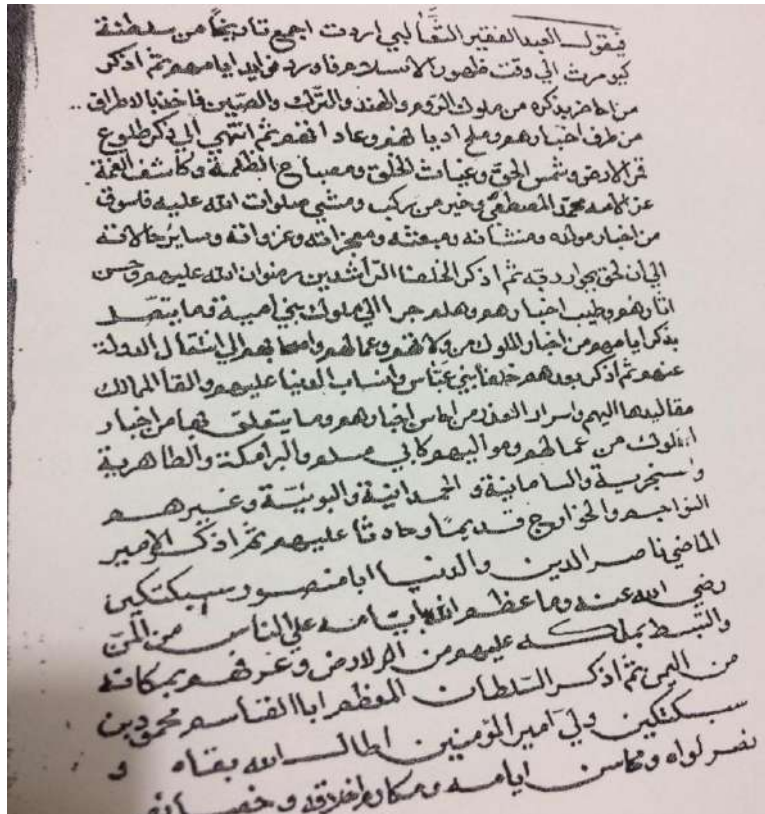 فيقول العبد الفقير الثعالبي اردت اجمع تاريخا من سلطنة
كيومرث الي وقت ظهور الاسلام فاورد فوايد ايامهم ثم اذكر
من احاضر بذكره من ملوك الروم والهند والترك والصين فاخذ بالاطراف
من طرف اخبارهم وملح اديانهم وعاداتهم ثم انتهي الي ذكر طلوع
قمر الارض وشمس الحق وغياث الخلق ومصباح الظلمة وكاشف الغمة
عن الامه محمد المصطفي وخير من ركب ومشي صلوات الله عليه فاسوق
من اخبار مولده ومنشائه ومبعثه ومعجزاته وغزواته وساير حالاته
الي ان لحق بجوار ربه ثم اذكر الخلفا الراشدين رضوان الله عليهم وحسن
اثارهم وطيب اخبارهم وهلم جرا الي ملوك بني امية فما يتصل
بذكر ايامهم من اخبار الملوك من ولاتهم وعمالهم واصحابهم الي انتقال الدولة
عنهم ثم اذكر بعدهم خلفا بني عباس وانساب الدنيا عليهم والقا الممالك
مقاليدها اليهم واسرار الغرر من محاسن اخبارهم وما يتعلق بها من اخبار
الملوك من عمالهم ومواليهم كابي مسلم والبرامكة والطاهرية
والسنجرية والسامانية والحمدانية والبوئية وغيرهم
النواجم والخوارج قديما وحادثا عليهم ثم اذكر الامير
الماضي ناصر الدين والدنيا ابا منصور سبكتكين
رضي الله عنه وما عظم الله بايامه علي الناس من المن
والبسط بملكه عليهم من الارض وعرفهم بمكانه
من اليمن ثم اذكر السلطان المعظم ابا القاسم محمود بن
سبكتكين ولي امير المؤمنين اطال الله بقاه و
نصر لواه ومحاسن ايامه ومكارم اخلاقه